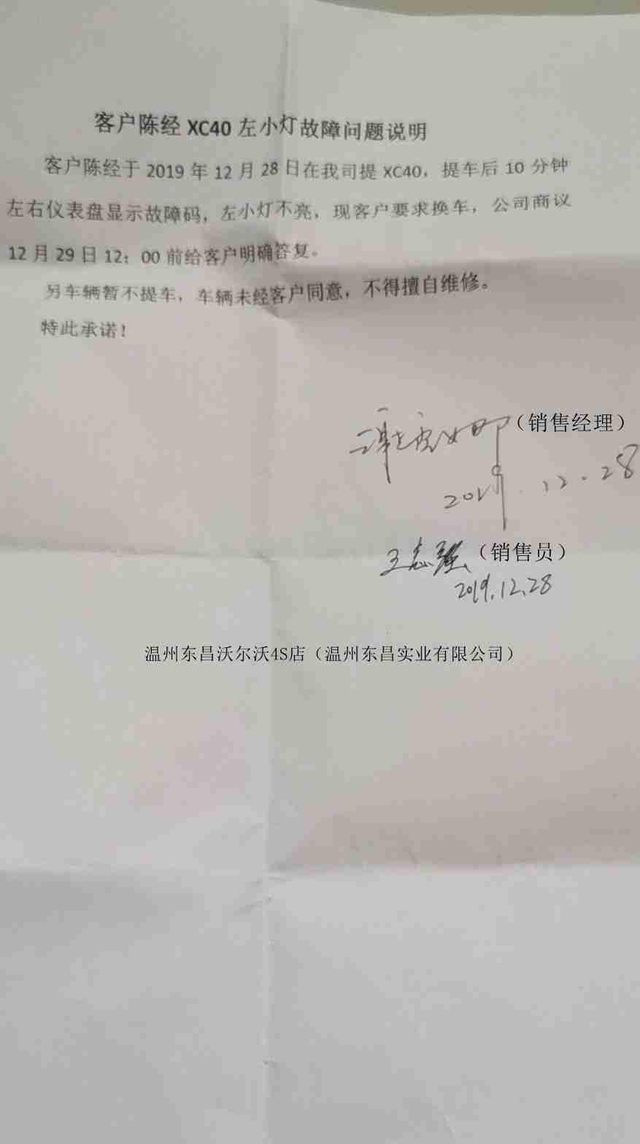 客户陈经 XC40 左小灯故障问题说明
客户陈经于 2019 年 12 月 28 日在我司提 XC40，提车后 10 分钟
左右仪表盘显示故障码，左小灯不亮，现客户要求换车，公司商议
12 月 29 日 12：00 前给客户明确答复。
另车辆暂不提车，车辆未经客户同意，不得擅自维修。
特此承诺！
（销售经理）
2019.12.28
王志强（销售员）
2019.12.28
温州东昌沃尔沃4S店（温州东昌实业有限公司）